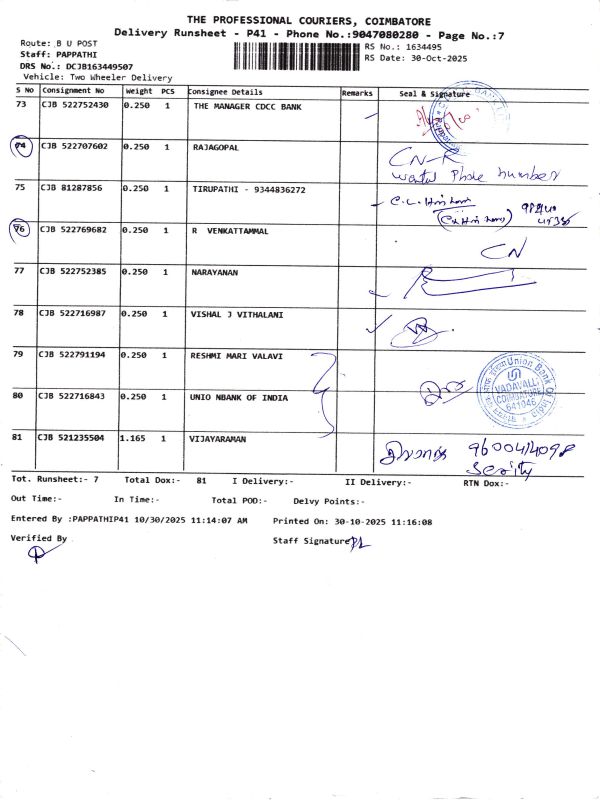 THE PROFESSIONAL COURIERS, COIMBATORE
Delivery Runsheet - P41 - Phone No.:9047080280 - Page No.:7
Route: B U POST
Staff: PAPPATHI
DRS No.: DCJB163449507
Vehicle: Two Wheeler Delivery
RS No.: 1634495
RS Date: 30-Oct-2025
S No Consignment No Weight PCS Consignee Details Remarks Seal & Signature
73 CJB 522752430 0.250 1 THE MANAGER CDCC BANK
74 CJB 522707602 0.250 1 RAJAGOPAL CN-R
Phone number
75 CJB 81287856 0.250 1 TIRUPATHI - 9344836272
76 CJB 522769682 0.250 1 R VENKATTAMMAL CN
77 CJB 522752385 0.250 1 NARAYANAN
78 CJB 522716987 0.250 1 VISHAL J VITHALANI
79 CJB 522791194 0.250 1 RESHMI MARI VALAVI
80 CJB 522716843 0.250 1 UNIO NBANK OF INDIA
Union Bank Of India
VADAVALLI
COIMBATORE
641046
81 CJB 521235504 1.165 1 VIJAYARAMAN
Tot. Runsheet:- 7 Total Dox:- 81 I Delivery:- II Delivery:- RTN Dox:-
Out Time:- In Time:- Total POD:- Delvy Points:-
Entered By :PAPPATHIP41 10/30/2025 11:14:07 AM Printed On: 30-10-2025 11:16:08
Verified By Staff Signature